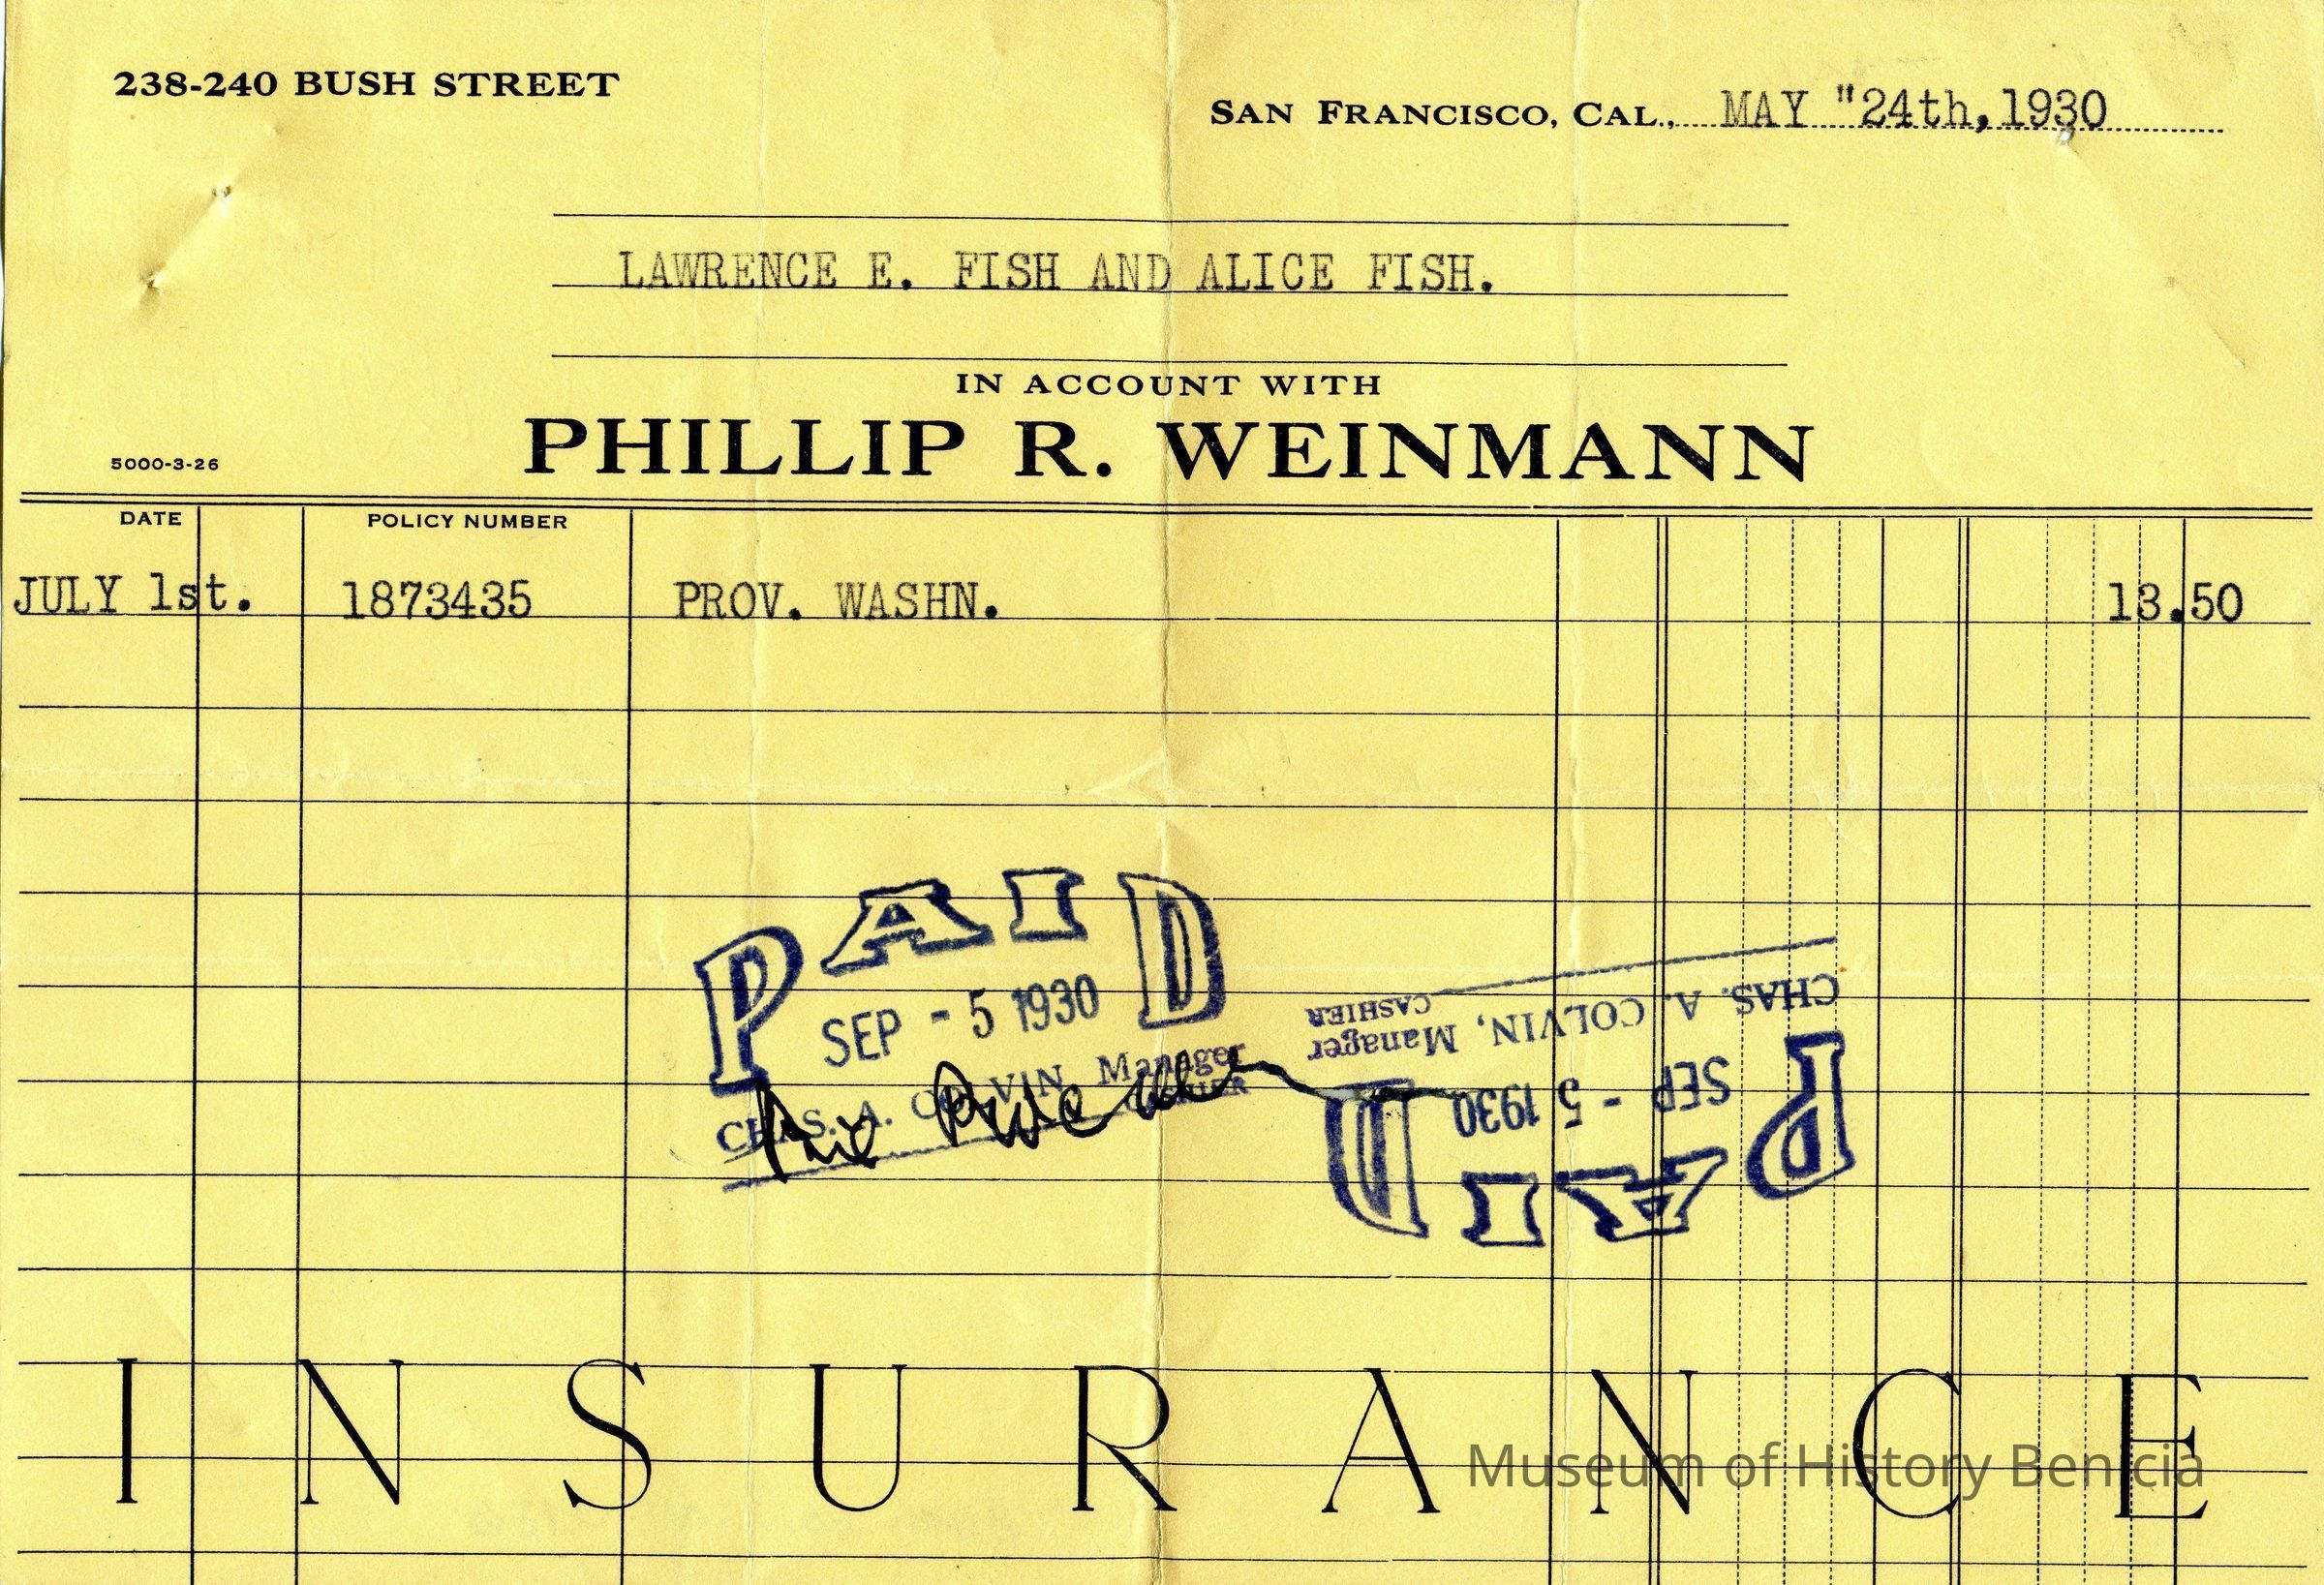 238-240 BUSH STREET
SAN FRANCISCO, CAL., MAY "24th, 1930
LAWRENCE E. FISH AND ALICE FISH.
IN ACCOUNT WITH
PHILLIP R. WEINMANN
5000-3-26
DATE POLICY NUMBER
JULY 1st. 1873435 PROV. WASHN. 13.50
PAID
SEP - 5 1930
CHAS. A. COLVIN Manager
CASHIER
PAID
SEP - 5 1930
CHAS. A. COLVIN, Manager
CASHIER
INSURANCE
Museum of History Benicia